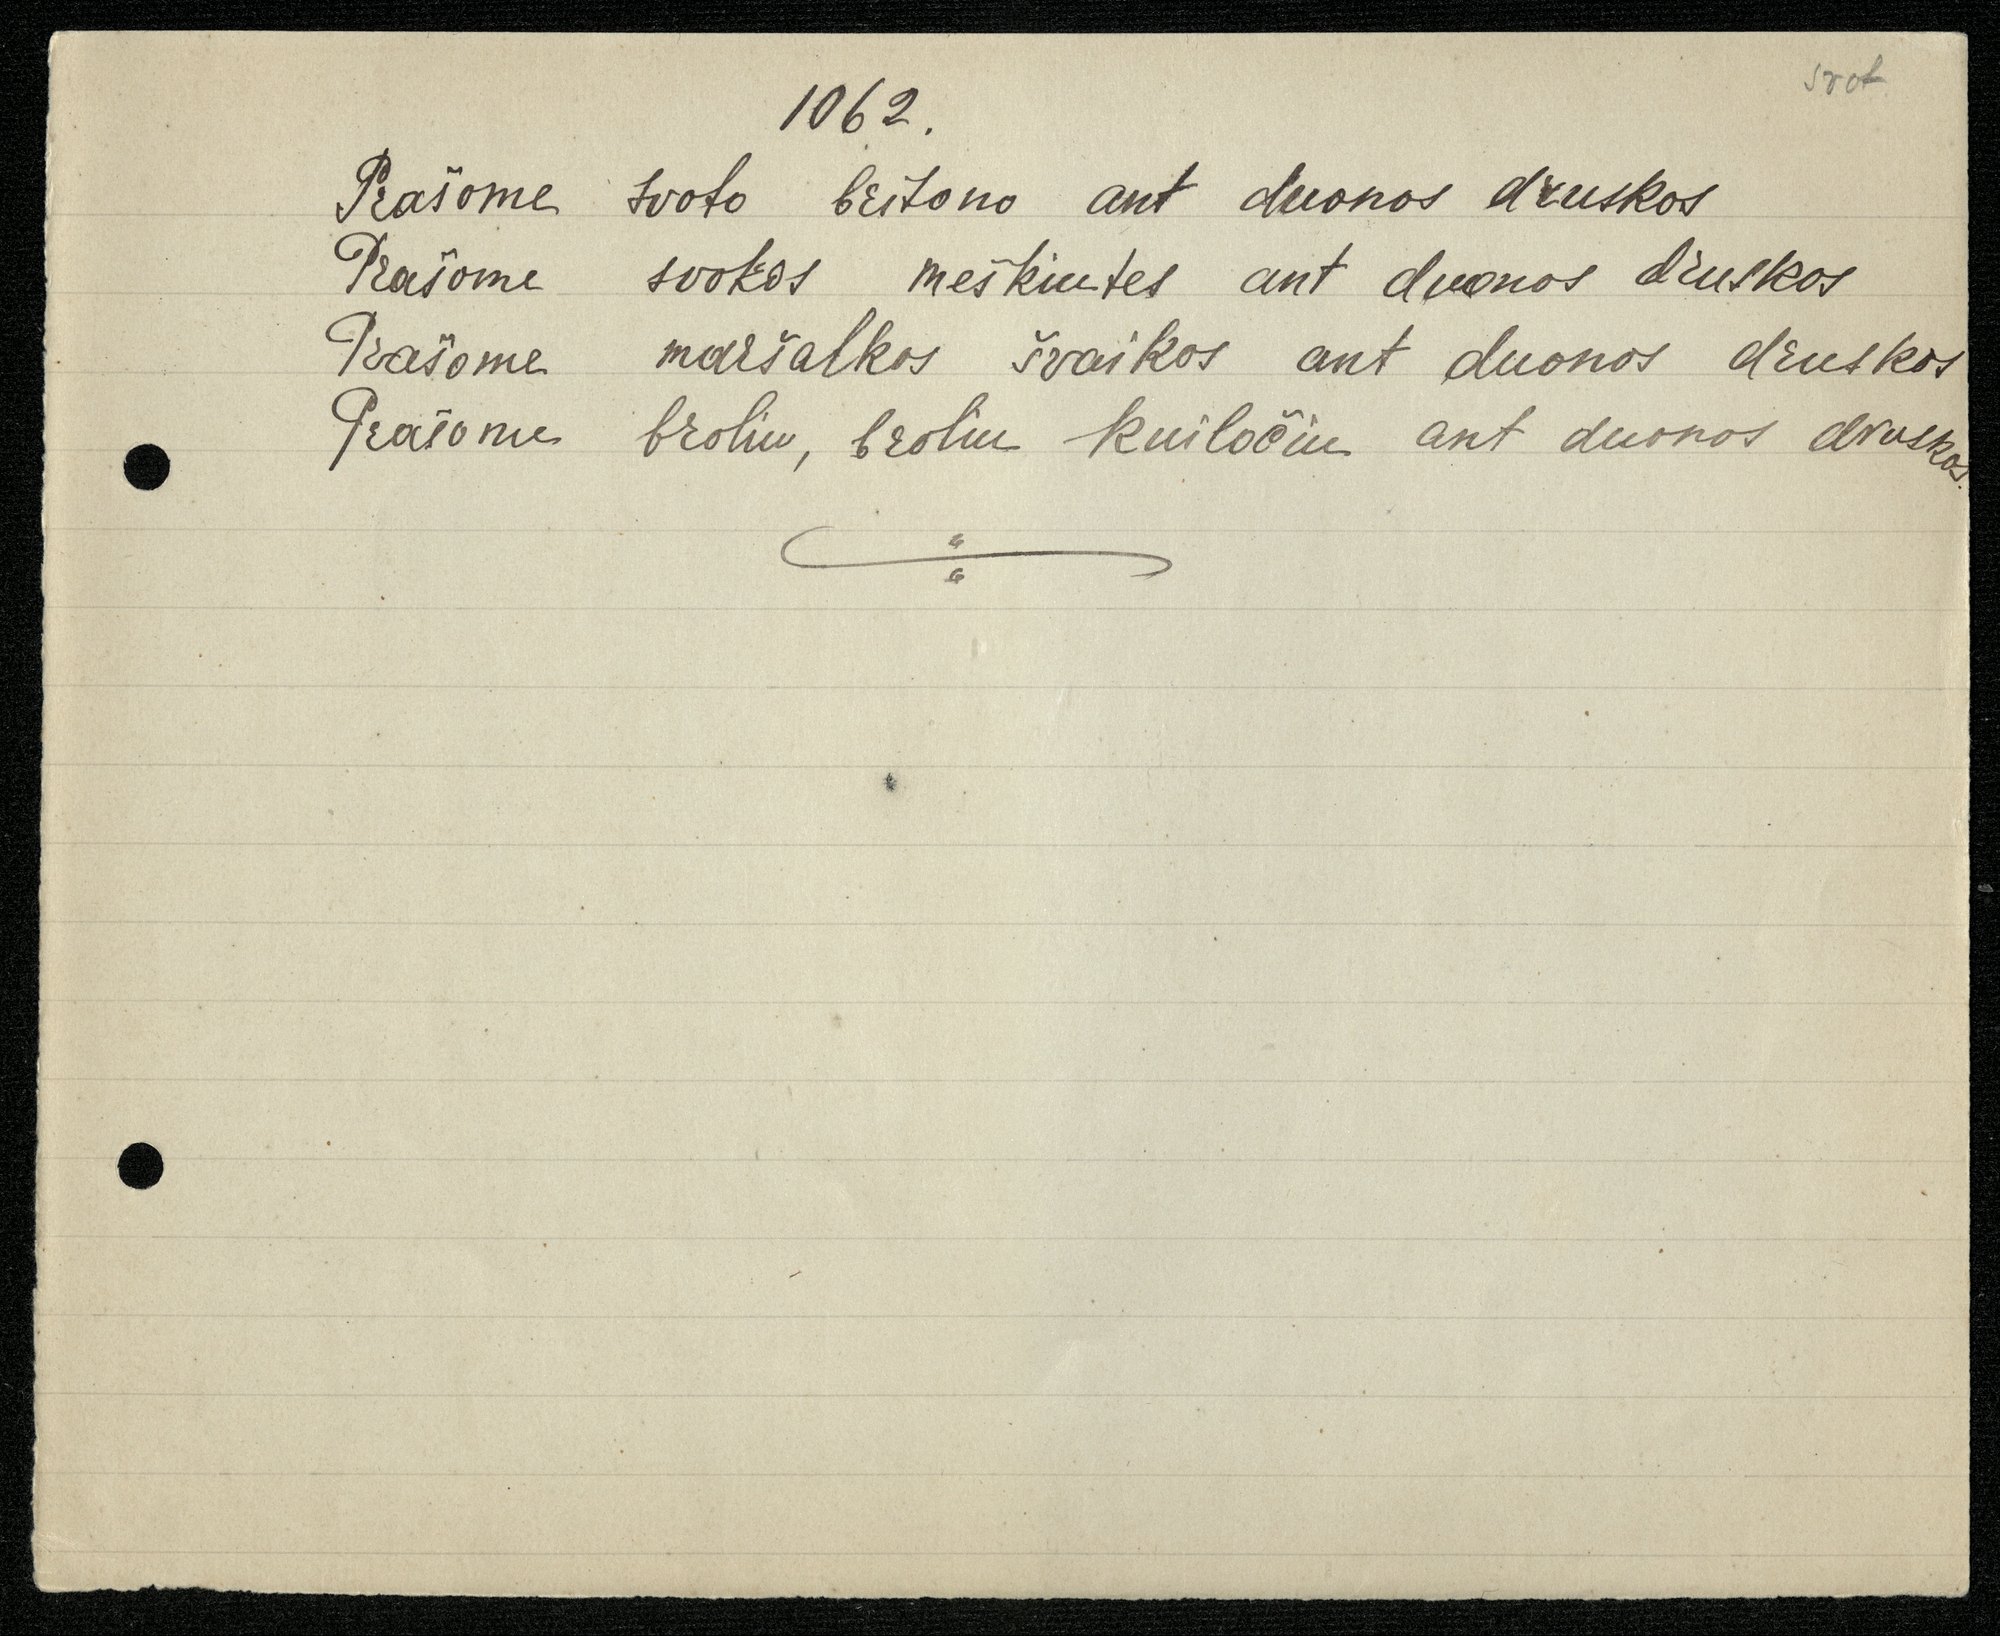 svot
1062.
Prašome svoto britono ant duonos druskos
Prašome svotos meškiutes ant duonos druskos
Prašome maršalkos švaikos ant duonos druskos
Prašome broliu, broliu kuiločiu ant duonos druskos.